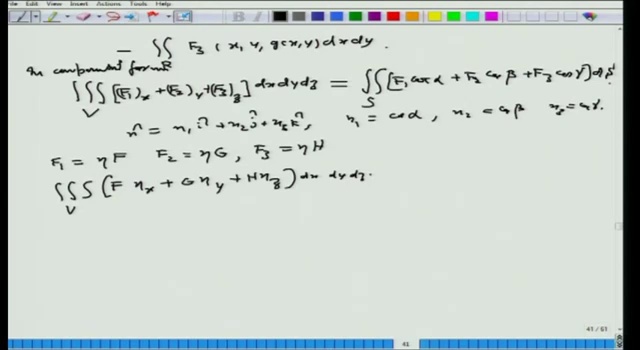 File Edit View Insert Actions Tools Help
− ∬_R F₃ (x, y, g(x,y)) dx dy.
In component form
∭_V [(F₁)_x + (F₂)_y + (F₃)_z] dx dy dz = ∬_S [F₁ cos α + F₂ cos β + F₃ cos γ] dS
n̂ = n₁ î + n₂ ĵ + n₃ k̂, n₁ = cos α, n₂ = cos β n₃ = cos γ.
F₁ = η F F₂ = η G, F₃ = η H
∭_V (F η_x + G η_y + H η_z) dx dy dz.
41 / 61
41